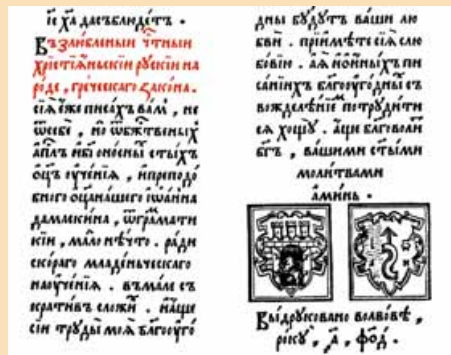 іс҃ ха дасъблюдетъ ·
Възлюбленыи чтныи
хрістіаньскии рускіи на
роде, греческаго закона.
сіѧ еже писахъ вамъ, не
ѿсебе, но ѿбжтвеныхъ
апⷭ҇лъ ибг҃оносныⷯ стыхъ
ѿц҃ъ оученіа, ипреподо
бнаго оц҃анашего іѡанна
дамаскина, ѿграмати
кіи, мало нѣчто. ради
скораго младеньческаго
наоученіѧ. въмале съ
кративъ сложиⷯ. иаще
сіи труды моѧ благоуго
дны будутъ ваши лю
бви. пріимѣте сіѧ слю
бовію. аꙗ иоиныхъ пи
саніихъ благоугодныⷯ съ
вожделѣніеⷨ потрудити
сѧ хощу. аще благоволи
бг҃ъ, вашими стыми
молитвами
аминь ·
Выдруковано волвовѣ,
року, ҂аф҃од.